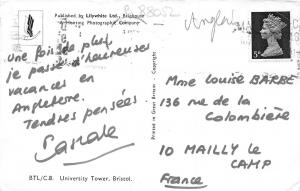 Published by Lilywhite Ltd., Brighouse
"A Hunting Photographic Company"
Angleterre
5d
Une fois de plus,
je passe d'heureuses
vacances en
Angleterre.
Tendres pensées
Printed in Great Britain - Copyright
Mme Louise BARBE
136 rue de la
Colombière
10 MAILLY le
CAMP
France
BTL/C.B. University Tower, Bristol.